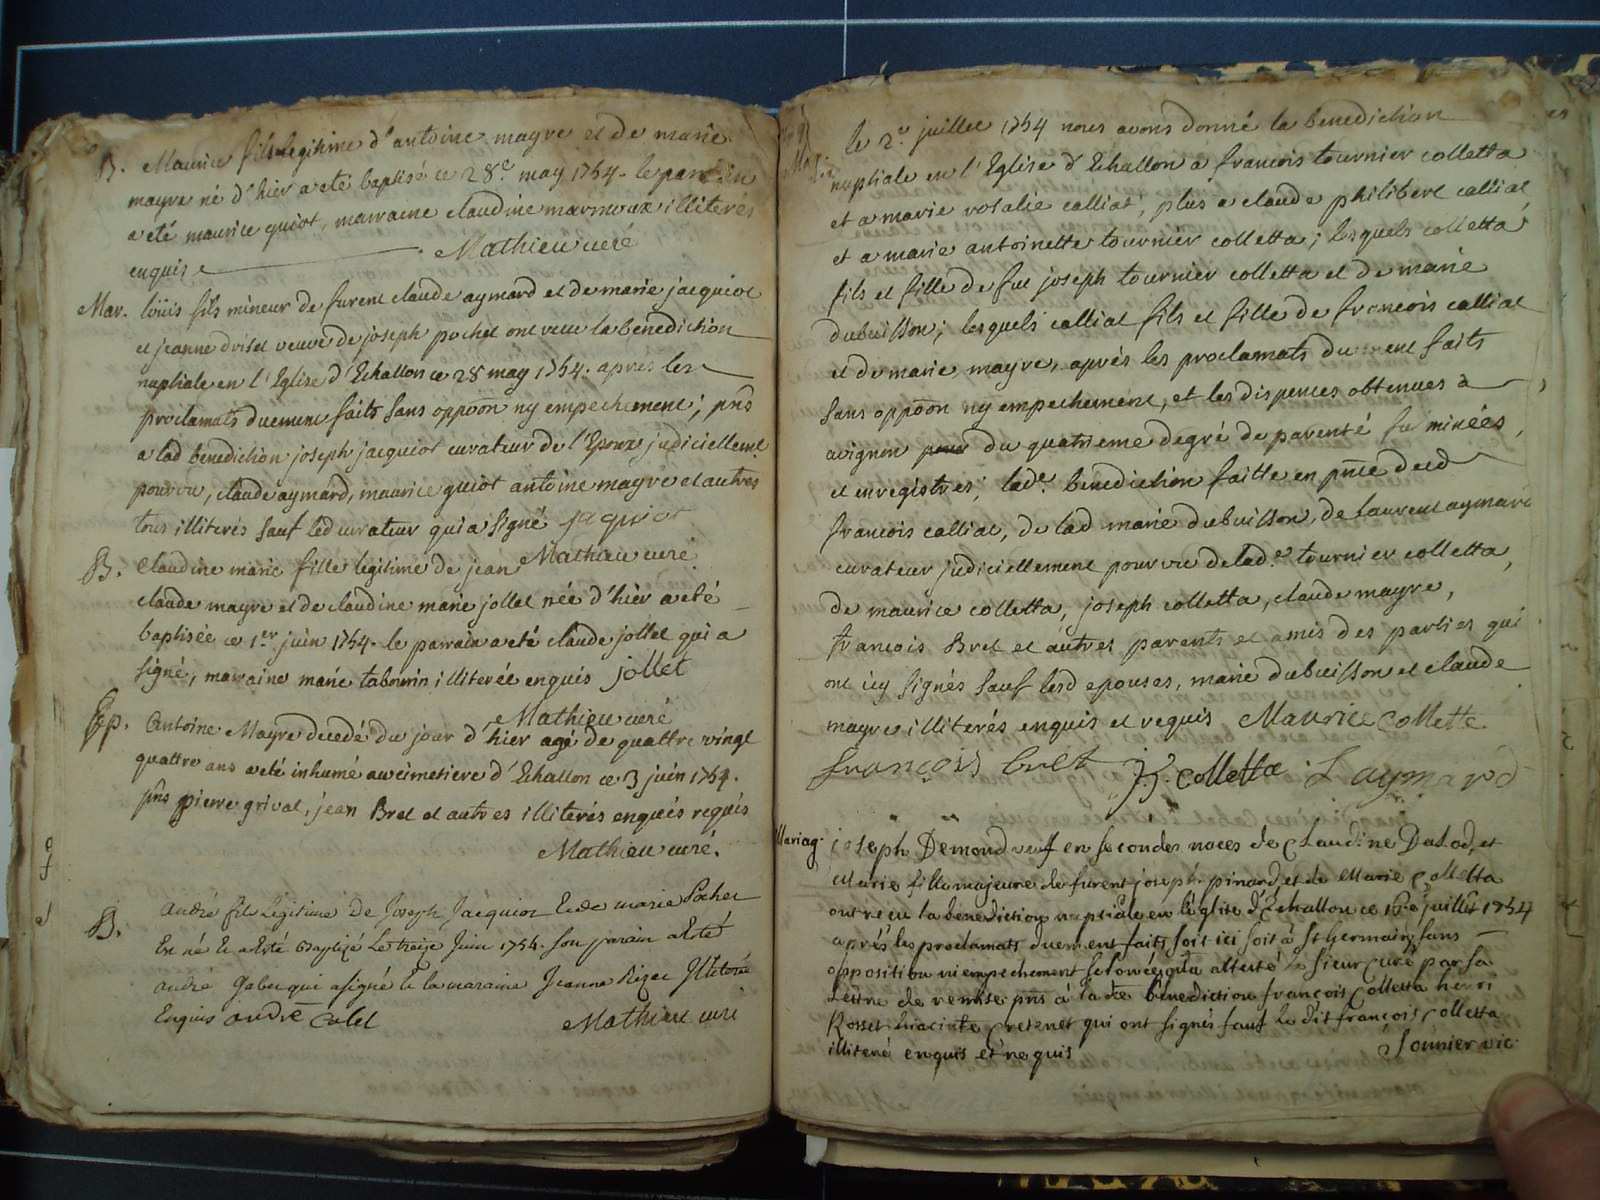 B. Maurice fils legitime d'antoine mayre et de marie
mayre né d'hier a eté baptisé ce 28e may 1754. le parrain
a eté maurice guiot, marraine claudine marmoux illiterés
enquise
Mathieu curé
Mar. loüis fils mineur de furent claude aymard et de marie jacquiot
et jeanne droset veuve de joseph pochet ont recu la benediction
nuptiale en l'Eglise d'Echallon ce 28 may 1754. apres les
proclamats duement faits sans oppoõn ny empechement; pñs
a lad benediction joseph jacquiot curateur de l'Epoux judiciellement
pourvu, claude aymard, maurice guiot antoine mayre et autres
tous illiterés sauf led curateur qui a signé jaquiot
Mathieu curé
B. Claudine marie fille legitime de jean
claude mayre et de claudine marie jollet née d'hier a eté
baptisée ce 1er juin 1754. le parrain a eté claude jollet qui a
signé, marraine marie tabourin illiterée enquis jollet
Mathieu curé
Sep. Antoine Mayre decedé du jour d'hier agé de quattre vingt
quattre ans a eté inhumé au cimetiere d'Echallon ce 3 juin 1754.
pñs pierre grival, jean Bret et autres illiterés enquis requis
Mathieu curé.
B. André fils Légitime de Joseph Jacquiot et de marie Pochet
Est né et a Esté Baptizé Le treize Juin 1754. Son parain a Esté
André Galet qui a signé et la maraine Jeanne Rizet Illetorée
Enquis andré Galet
Mathieu curé
le 2e juillet 1754 nous avons donné la benediction
nuptiale en l'Eglise d'Echallon a francois tournier colletta
et a marie rosalie calliat, plus a claude philibert calliat
et a marie antoinette tournier colletta; lesquels colletta
fils et fille de feu joseph tournier colletta et de marie
dubuisson; lesquels calliat fils et fille de francois calliat
et de marie mayre, aprés les proclamats duement faits
sans oppoõn ny empechement, et les dispences obtenues a
avignon du quatrieme degré de parenté fulminées,
et enregistrées; lade. benediction faitte en pñce dud
francois calliat, de lad marie dubuisson, de laurent aymard
curateur judiciellement pourvu delade. tournier colletta,
de maurice colletta, joseph colletta, claude mayre,
francois Bret et autres parents et amis des parties qui
ont icy signés sauf lesd epouses, marie dubuisson et claude
mayre illiterés enquis et requis Maurice Collette
françois bret J. colletta L aymard
Mariag. joseph Demond veuf en secondes noces de Claudine Dalod, et
Marie fille majeure de furent joseph pinard et de Marie Colletta
ont reçu la bénediction nuptiale en l'églize d'Echallon ce 16e juillet 1754
aprés les proclamats duement faits soit ici soit à St Germain, sans
opposition ni empechement selon ce qu'a attesté le sieur Curé par sa
Lettre de remise pñs á la de bénediction françois Colletta henri
Rosset hiacinte Cretenet qui ont signés sauf le dit françois Colletta
illiteré enquis et requis
Sonnier vic.